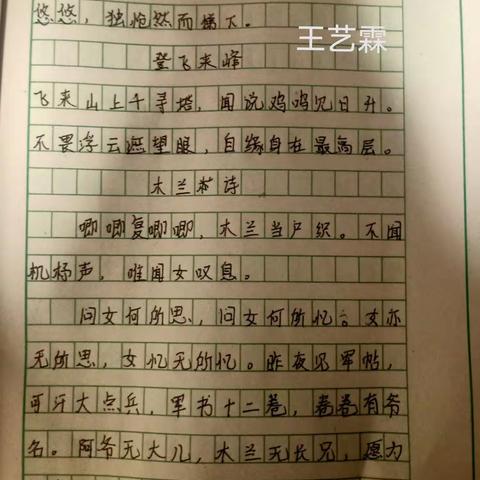 悠悠，独怆然而涕下。
王艺霖
登飞来峰
飞来山上千寻塔，闻说鸡鸣见日升。
不畏浮云遮望眼，自缘身在最高层。
木兰诗
唧唧复唧唧，木兰当户织。不闻
机杼声，唯闻女叹息。
问女何所思，问女何所忆。女亦
无所思，女忆无所忆。昨夜见军帖，
可汗大点兵，军书十二卷，卷卷有爷
名。阿爷无大儿，木兰无长兄，愿为